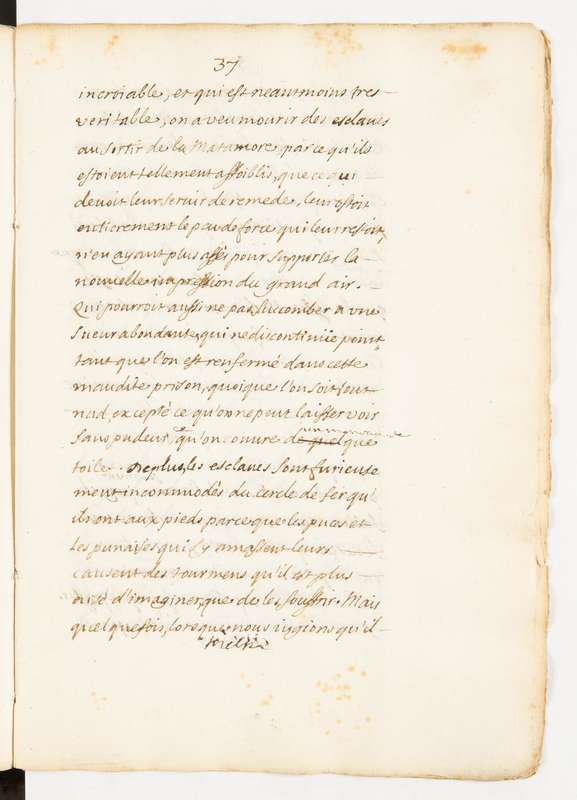 37
incroiable, et qui est neantmoins tres
veritable, on a veu mourir des esclaves
au sortir de la Matamore, parce qu'ils
estoient tellement affoiblis, que ce qui
devoit leur servir de remede, leur ostoit
entierement le peu de force qui leur restoit,
n'en ayant plus assés pour supporter la
nouvelle impression du grand air.
Qui pourroit aussi ne pas succomber a vne
sueur abondante, qui ne discontinüe point
tant que l'on est renfermé dans cette
maudite prison, quoique l'on soit tout
nud, excepté ce qu'on ne peut laisser voir
sans pudeur, qu'on couure de quelque
toile. Deplus, les esclaves sont furieuse
ment incommodés du cercle de fer qu'
ils ont aux pieds parceque les puces et
les punaises qui s'y amassent leurs
causent des tourmens qu'il est plus
aisé d'imaginer, que de les souffrir. Mais
quelquefois, lorsque nous iugions qu'il